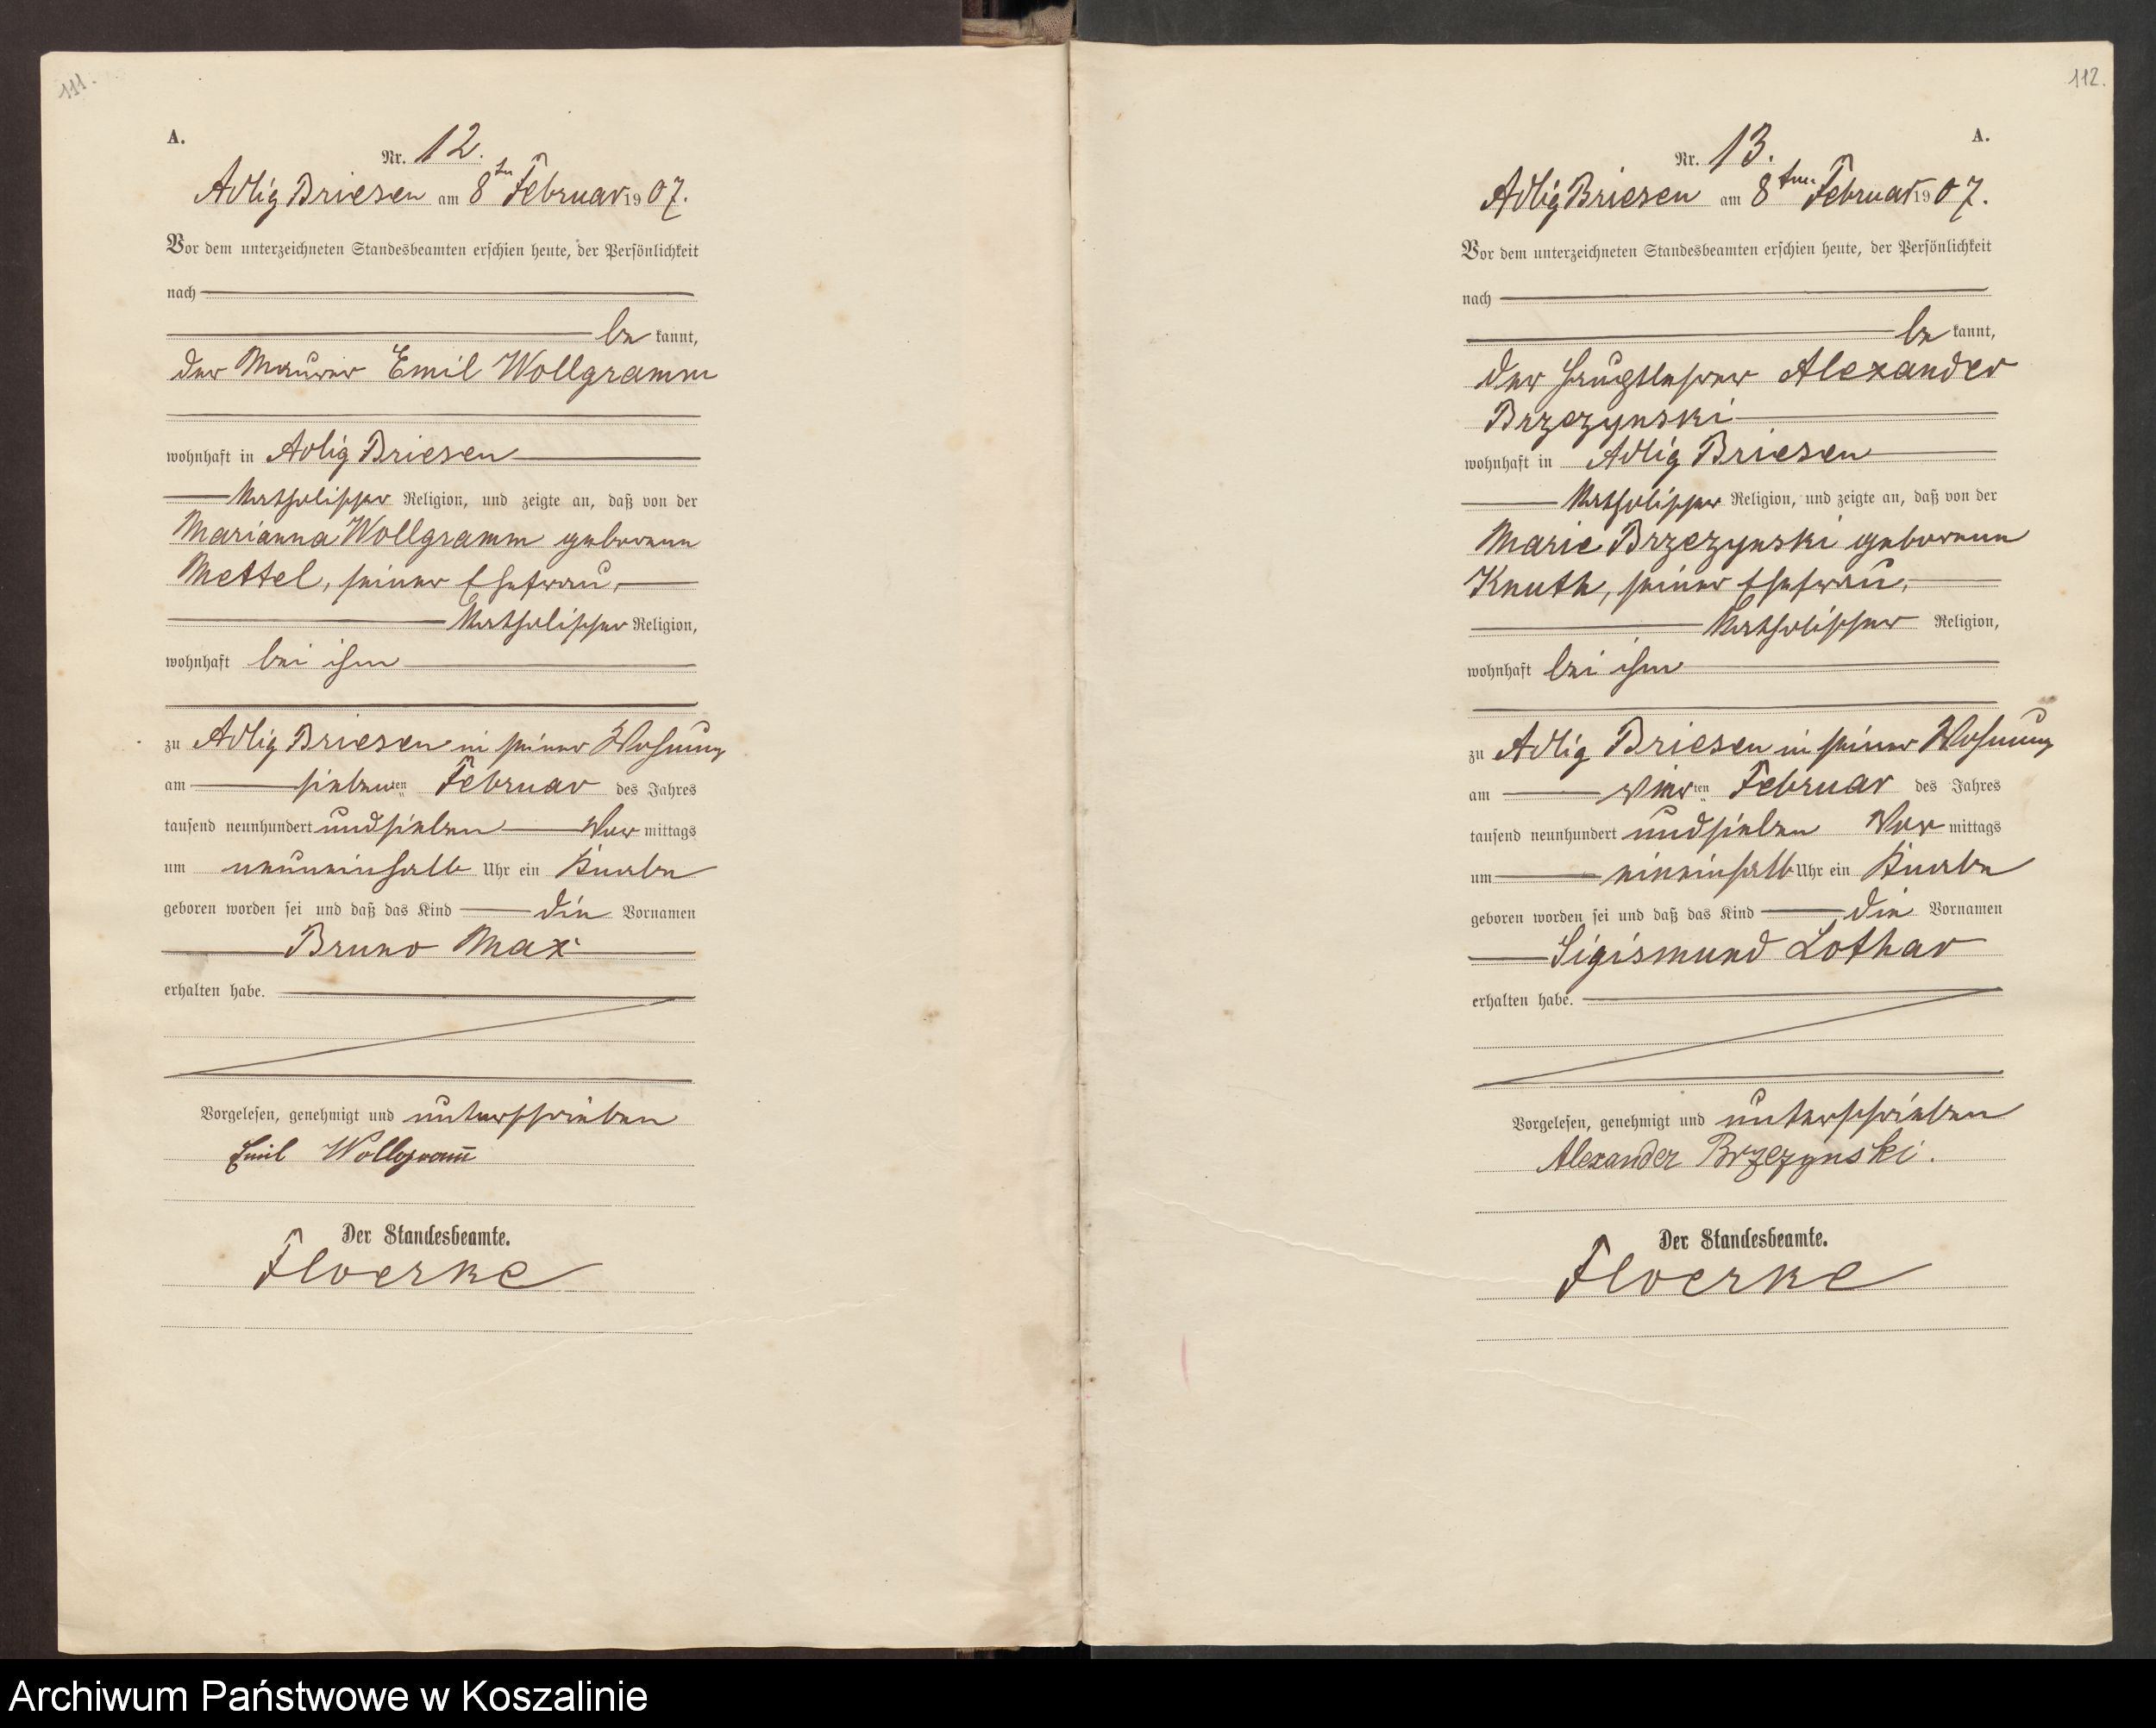 111.
A.
Nr. 12.
Adlig Briesen am 8ten Februar 1907.
Vor dem unterzeichneten Standesbeamten erschien heute, der Persönlichkeit
nach
be kannt,
der Maurer Emil Wollgramm
wohnhaft in Adlig Briesen
katholischer Religion, und zeigte an, daß von der
Marianna Wollgramm geborenen
Mettel, seiner Ehefrau,
katholischer Religion,
wohnhaft bei ihm
zu Adlig Briesen in seiner Wohnung
am siebenten Februar des Jahres
tausend neunhundert und sieben Vor mittags
um neuneinhalb Uhr ein Knabe
geboren worden sei und daß das Kind die Vornamen
Bruno Max
erhalten habe.
Vorgelesen, genehmigt und unterschrieben
Emil Wollgram̅
Der Standesbeamte.
Floerke
112.
A.
Nr. 13.
Adlig Briesen am 8ten Februar 1907.
Vor dem unterzeichneten Standesbeamten erschien heute, der Persönlichkeit
nach
be kannt,
der Hauptlehrer Alexander
Brzezynski
wohnhaft in Adlig Briesen
katholischer Religion, und zeigte an, daß von der
Marie Brzezynski geborenen
Knuth, seiner Ehefrau,
katholischer Religion,
wohnhaft bei ihm
zu Adlig Briesen in seiner Wohnung
am vierten Februar des Jahres
tausend neunhundert und sieben Vor mittags
um eineinhalb Uhr ein Knabe
geboren worden sei und daß das Kind die Vornamen
Sigismund Lothar
erhalten habe.
Vorgelesen, genehmigt und unterschrieben
Alexander Brzezynski.
Der Standesbeamte.
Floerke
Archiwum Państwowe w Koszalinie